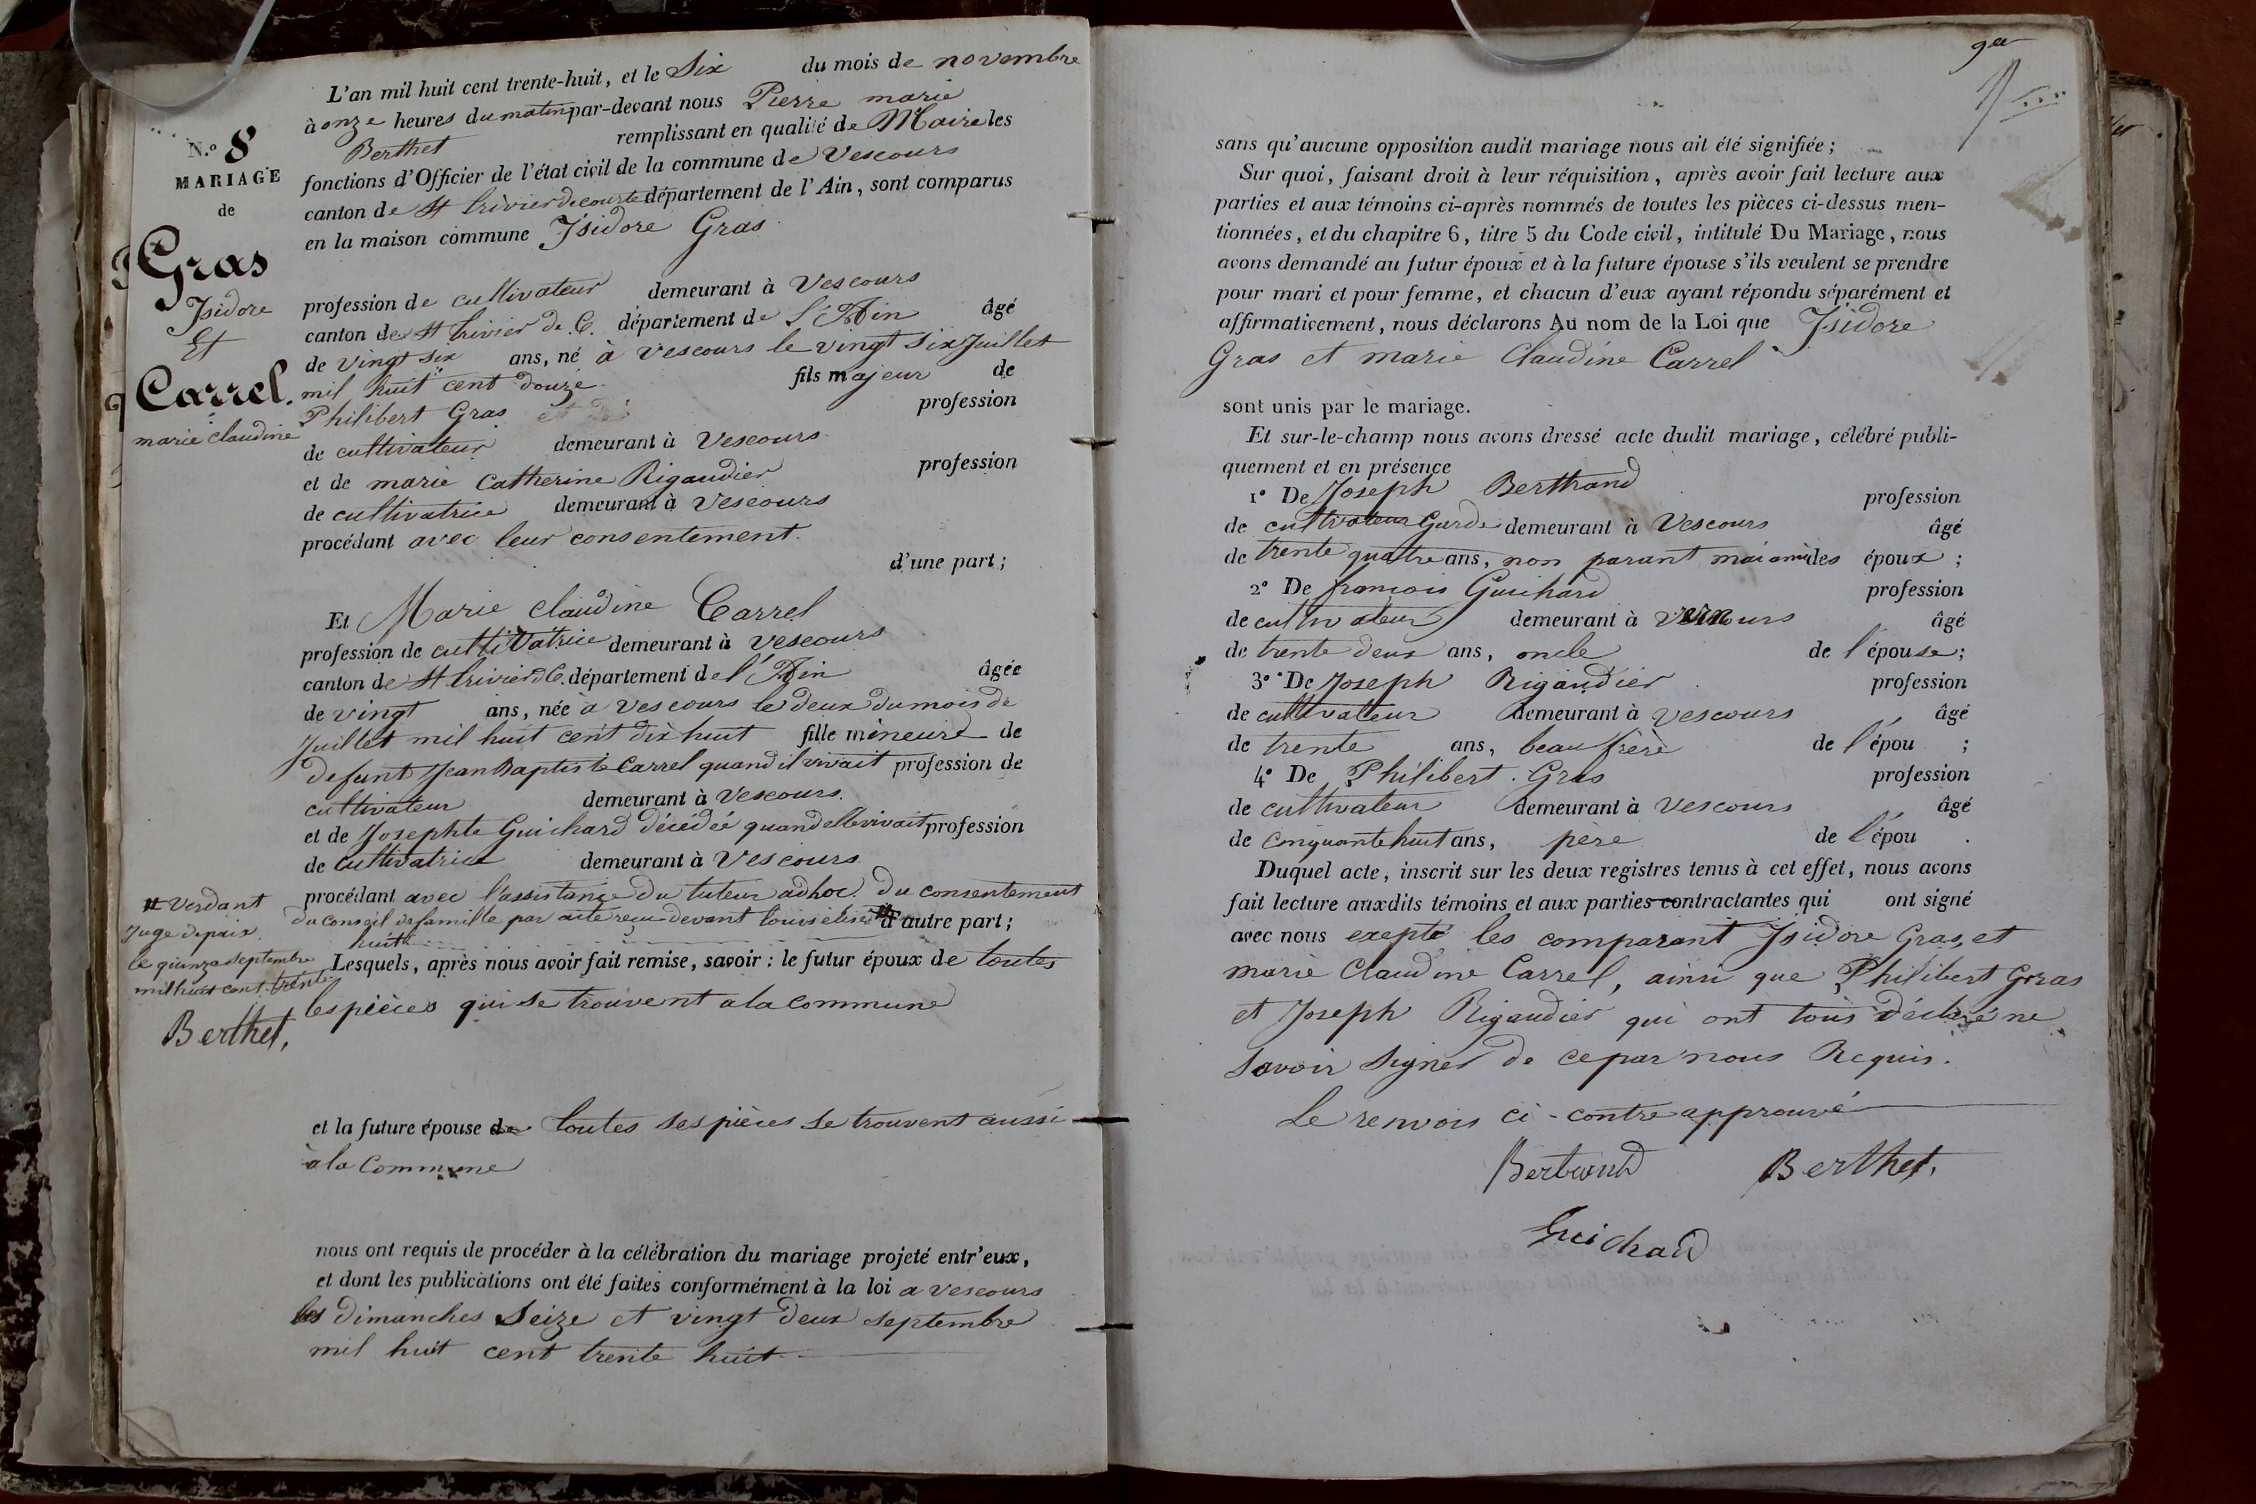 N.º 8
MARIAGE
de
Gras
Isidore
Et
Carrel.
marie claudine
L'an mil huit cent trente-huit, et le Six du mois de novembre
à onze heures du matin par-devant nous Pierre marie
Berthet remplissant en qualité de Maire les
fonctions d'Officier de l'état civil de la commune de Vescours
canton de St trivier de courtes département de l'Ain, sont comparus
en la maison commune Isidore Gras
profession de cultivateur demeurant à Vescours
canton de St trivier de C. département de l'Ain âgé
de vingt six ans, né à vescours le vingt six Juillet
mil huit cent douze fils majeur de
Philibert Gras profession
de cultivateur demeurant à Vescours
et de marie Catherine Rigaudier profession
de cultivatrice demeurant à Vescours
procédant avec leur consentement.
d'une part;
Et Marie claudine Carrel
profession de cultivatrice demeurant à vescours
canton de St trivier d C. département de l'Ain âgée
de vingt ans, née à vescours le deux du mois de
Juillet mil huit cent dix huit fille mineure de
defunt Jean Baptiste Carrel quand il vivait profession de
cultivateur demeurant à Vescours.
et de Josephte Guichard décédée quand elle vivait profession
de cultivatrice demeurant à Vescours
procédant avec l'assistance du tuteur adhoc du consentement
du Conseil de famille par acte reçu devant louis d'autre part;
# Verdant
Juge de paix
le quinze septembre
mil huit cent trente
huit
Berthet,
Lesquels, après nous avoir fait remise, savoir : le futur époux de toutes
les pièces qui se trouvent a la commune
et la future épouse de toutes ses pièces se trouvent aussi
à la Commune
nous ont requis de procéder à la célébration du mariage projeté entr'eux,
et dont les publications ont été faites conformément à la loi a vescours
les dimanches Seize et vingt deux septembre
mil huit cent trente huit
sans qu'aucune opposition audit mariage nous ait été signifiée;
Sur quoi, faisant droit à leur réquisition, après avoir fait lecture aux
parties et aux témoins ci-après nommés de toutes les pièces ci-dessus men-
tionnées, et du chapitre 6, titre 5 du Code civil, intitulé Du Mariage, nous
avons demandé au futur époux et à la future épouse s'ils veulent se prendre
pour mari et pour femme, et chacun d'eux ayant répondu séparément et
affirmativement, nous déclarons Au nom de la Loi que Isidore
Gras et marie Claudine Carrel
sont unis par le mariage.
Et sur-le-champ nous avons dressé acte dudit mariage, célébré publi-
quement et en présence
1º De Joseph Berthand profession
de cultivateur Garde demeurant à Vescours âgé
de trente quatre ans, non parant mai ami des époux ;
2º De françois Guichard profession
de cultivateur demeurant à âgé
de trente deux ans, oncle de l'épouse;
3º De Joseph Rigaudier profession
de cultivateur demeurant à vescours âgé
de trente ans, beau frère de l'épou ;
4º De Philibert Gras profession
de cultivateur demeurant à vescours âgé
de cinquante huit ans, père de l'épou .
Duquel acte, inscrit sur les deux registres tenus à cet effet, nous avons
fait lecture auxdits témoins et aux parties contractantes qui ont signé
avec nous exepté les comparant Isidore Gras, et
marie Claudine Carrel, ainsi que Philibert Gras
et Joseph Rigaudier qui ont tous déclaré ne
Savoir Signer de ce par nous Requis.
Le renvois ci-contre approuvé
Bertrand Berthet,
Guichard